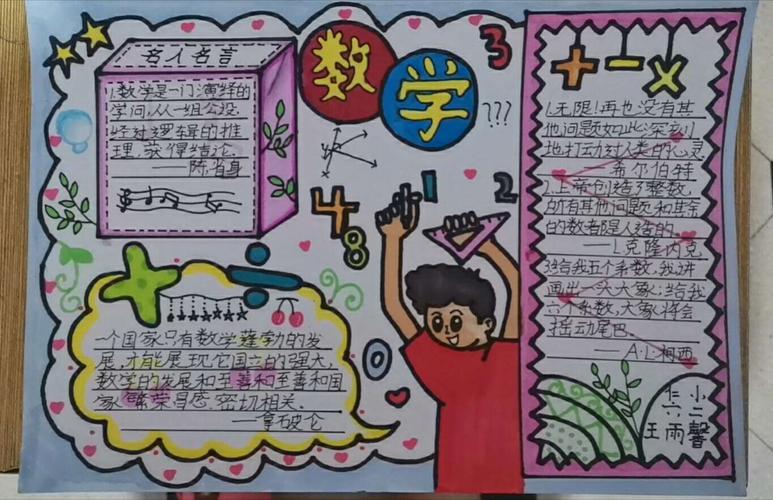 名人名言
1.数学是一门演绎的
学问,从一组公设,
经过逻辑的推
理,获得结论.
——陈省身
数学
3
???
1
2
4
8
0
一个国家只有数学蓬勃的发
展,才能展现它国立的强大,
数学的发展和至善和至善和国
家繁荣昌盛密切相关.
——拿破仑
+ - ×
1.无限!再也没有其
他问题如此深刻
地打动过人类的心灵
——希尔伯特
2.上帝创造了整数,
所有其他问题和其余
的数都是人造的.
——L.克隆内克
3.给我五个系数,我讲
画出一头大象;给我
六个系数,大象将会
摇动尾巴.
——A.L.柯西
仁小
六二
王雨馨